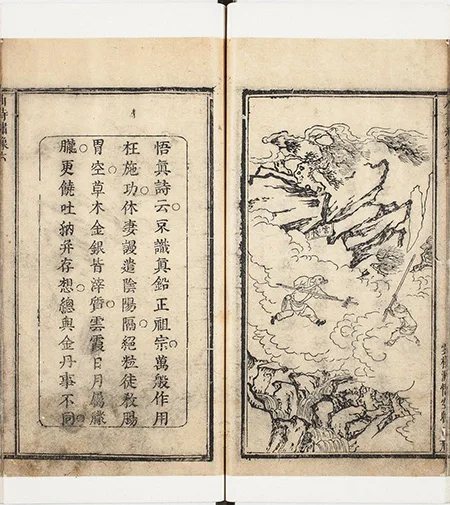 悟眞詩云不識眞鉛正祖宗萬般作用
枉施功休妻謾遣陰陽隔絕粒徒教腸
胃空草木金銀皆滓質雲霞日月屬朦
朧更饒吐納并存想總與金丹事不同